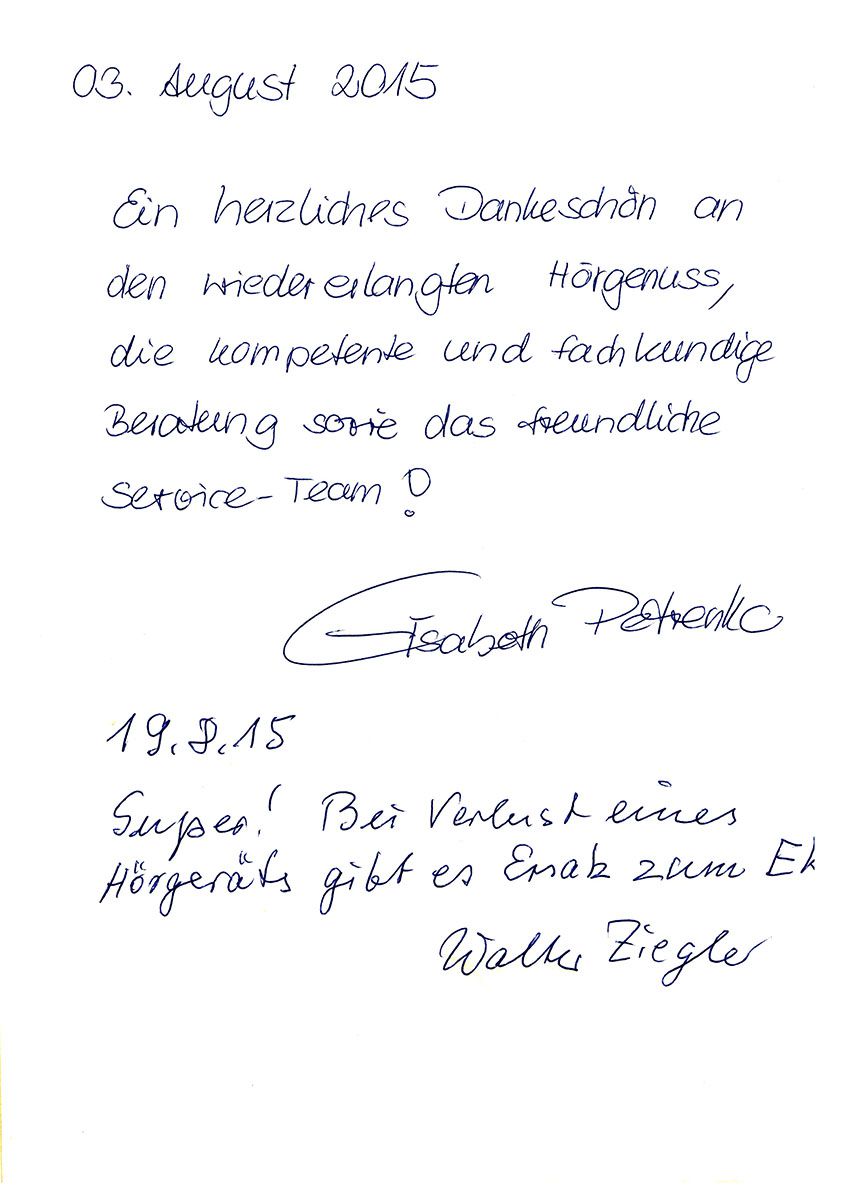 03. August 2015
Ein herzliches Dankeschön an
den wiedererlangten Hörgenuss,
die kompetente und fachkundige
Beratung sowie das freundliche
Service-Team!
Elisabeth Petrenko
19.8.15
Super! Bei Verlust eines
Hörgeräts gibt es Ersatz zum EK
Walter Ziegler